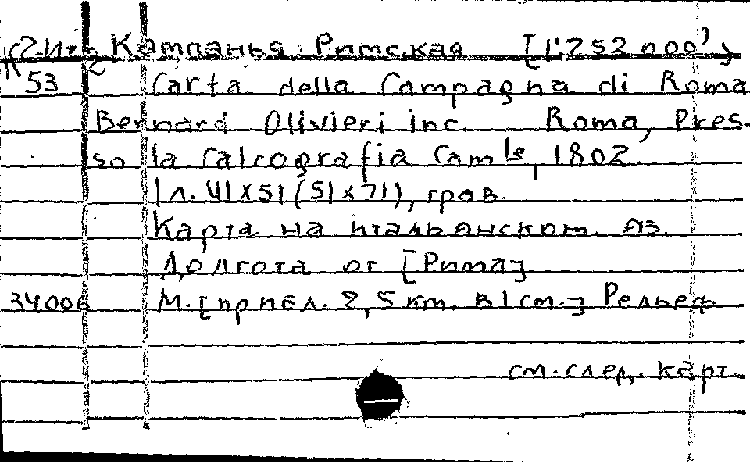 Кампанья Римская [1:252 000]
53 Carta della Campagna di Roma
Bernard Olivieri inc. Roma, Pres-
so la Calcografia Cam le, 1802
1 л. 41x51 (51x71), грав.
Карта на итальянском яз.
Долгота от [Рима]
34006 М. [прибл. 2,5 км. в 1 см.] Рельеф
см. след. карт.